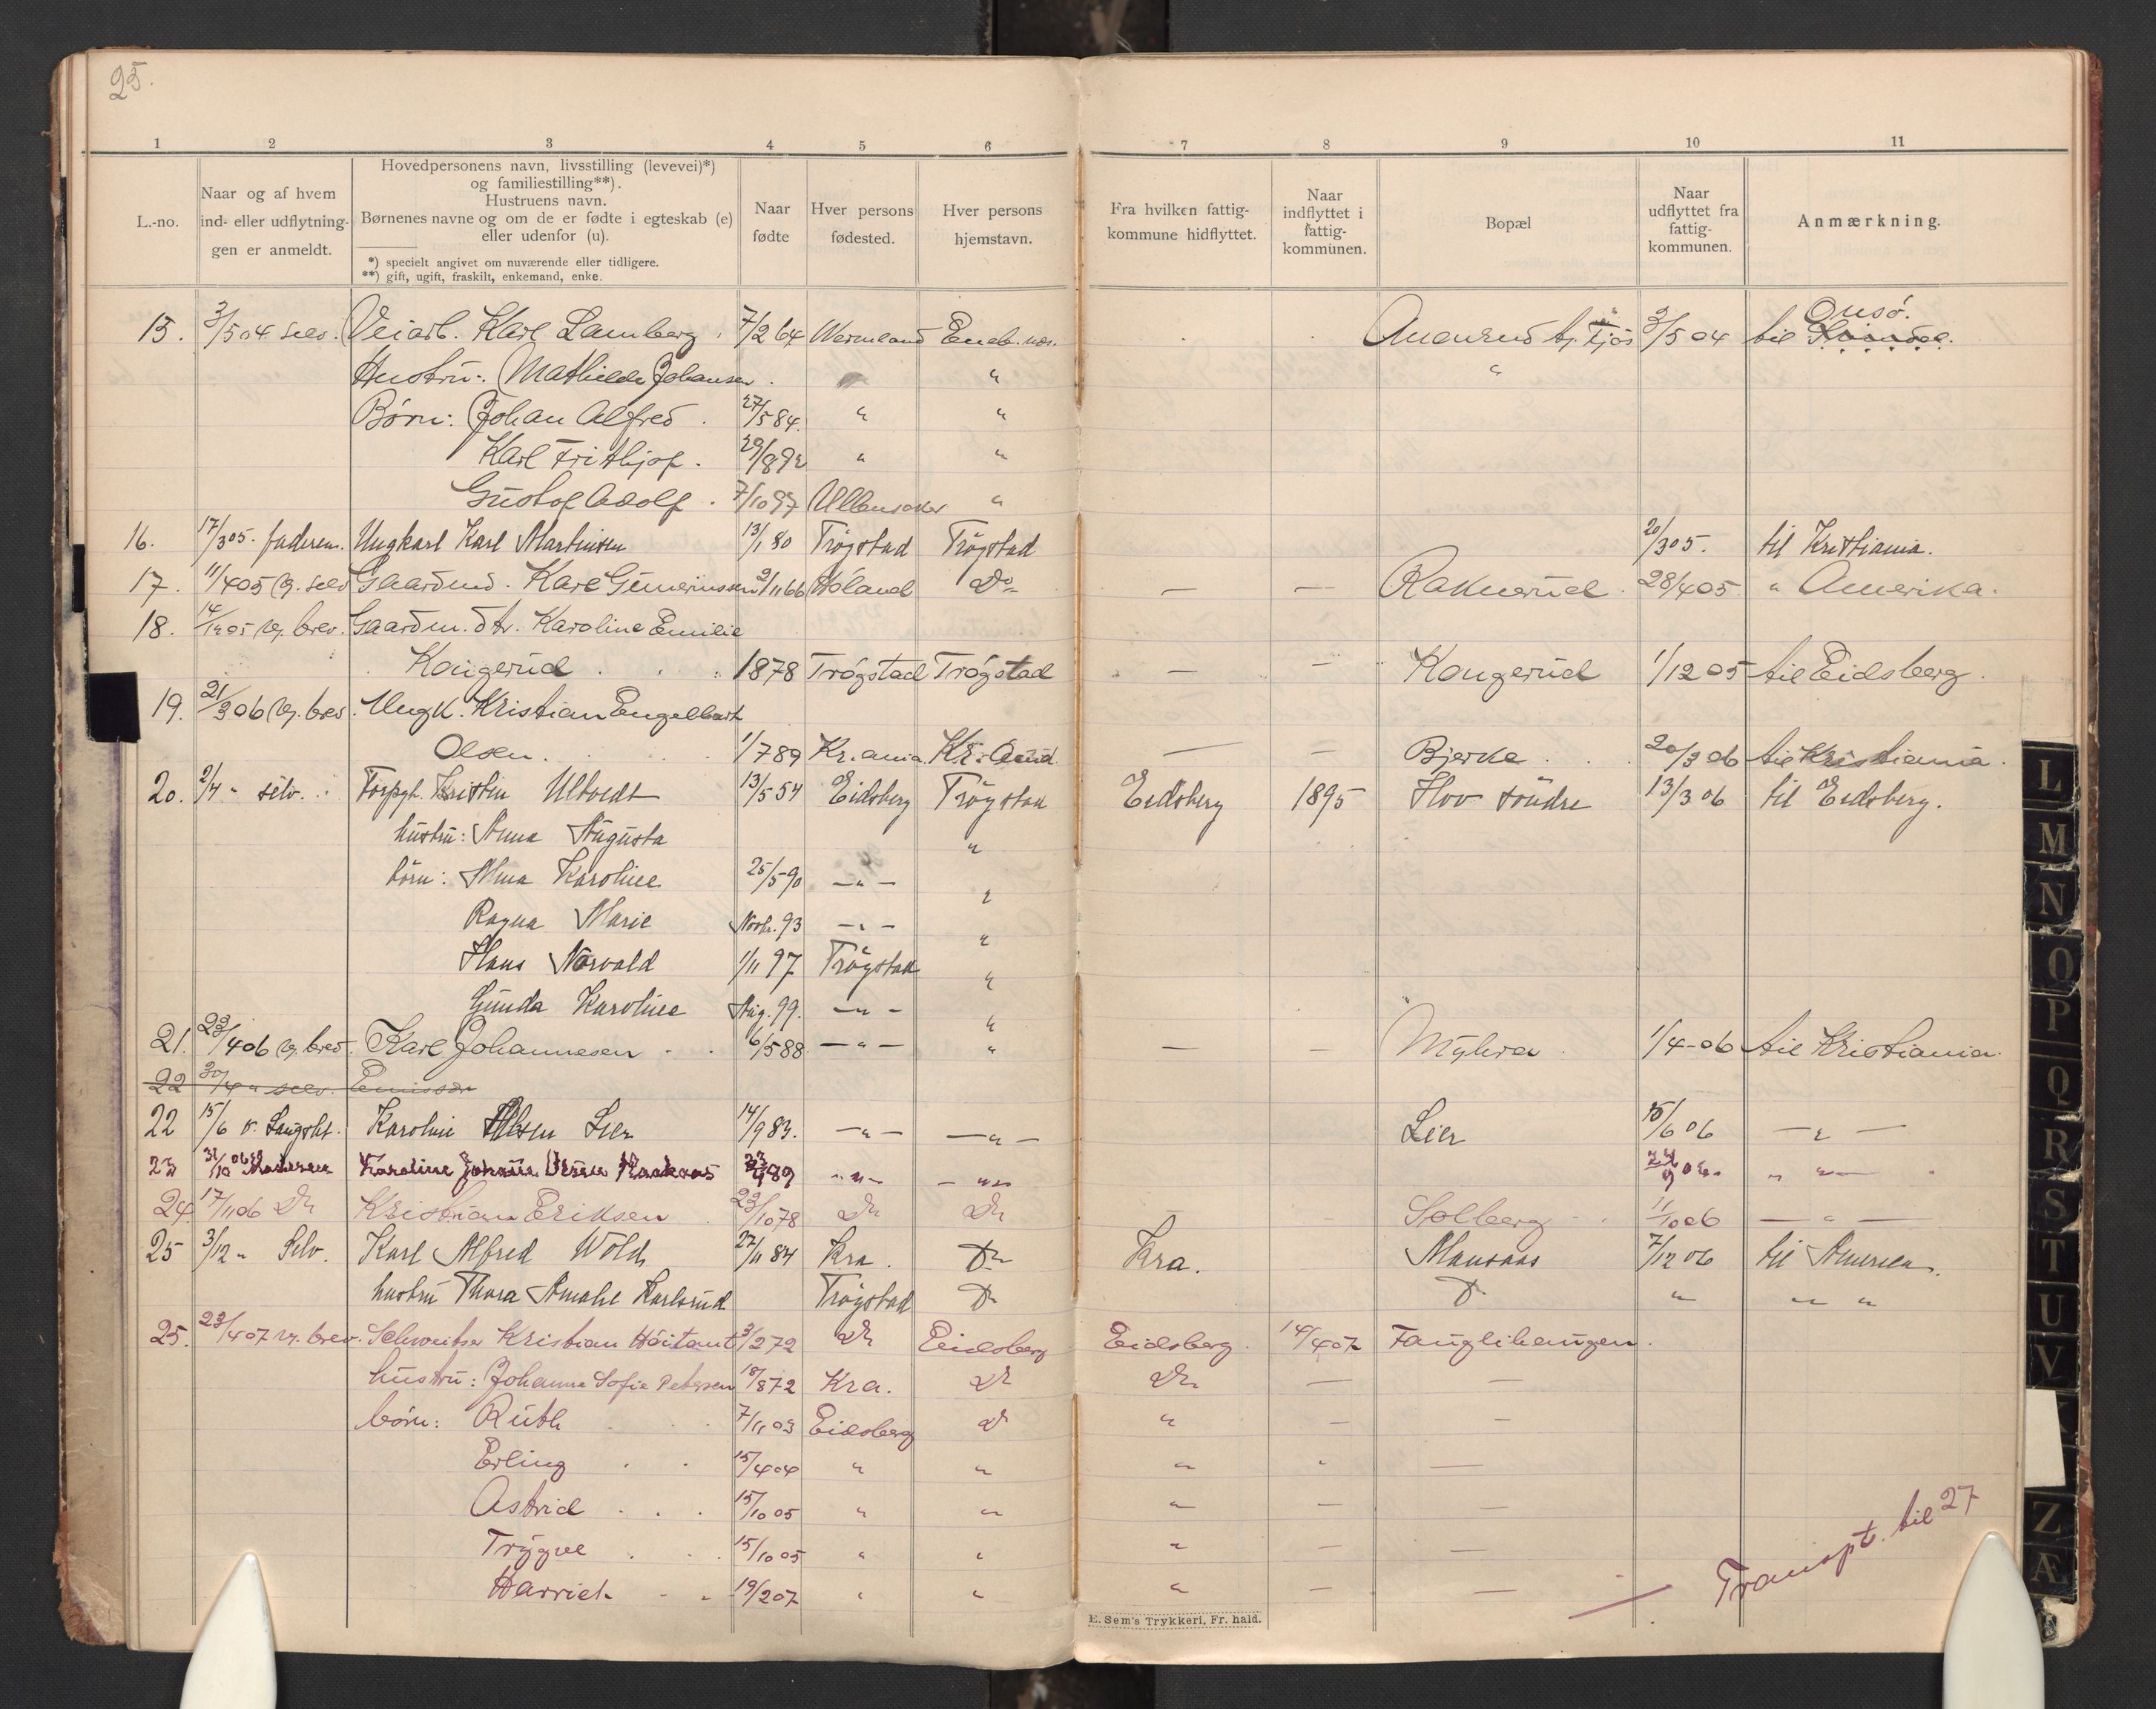 25.
1 2 3 4 5 6 7 8 9 10 11
L.-no.
Naar og af hvem
ind- eller udflytnin-
gen er anmeldt.
Hovedpersonens navn, livsstilling (levevei)*)
og familiestilling**).
Hustruens navn.
Børnenes navne og om de er fødte i egteskab (e)
eller udenfor (u).
*) specielt angivet om nuværende eller tidligere.
**) gift, ugift, fraskilt, enkemand, enke.
Naar
fødte
Hver persons
fødested.
Hver persons
hjemstavn.
Fra hvilken fattig-
kommune hidflyttet.
Naar
indflyttet i
fattig-
kommunen.
Bopæl
Naar
udflyttet fra
fattig-
kommunen.
Anmærkning.
15. 3/5 04 selv. Veiarb. Karl Lamberg. 7/2 64 Wermland Eneb. Fjøs 3/5 04 til Onsø.
Hustru: Mathilde Johansen. " "
Børn: Johan Alfred. 27/5 84. " "
Karl Frithjof. 29/8 92 " "
Gustof Adolf. 7/10 97 Ullensaker "
16. 17/3 05. faderen. Ungkarl Karl Martinsen 13/1 80 Trøgstad Trøgstad 20/3 05. til Kristiania.
17. 11/4 05 selv Gaardmd. Karl 2/11 66 Høland Do — — Raknerud 28/4 05 " Amerika.
18. 14/12 05 brev. Gaardm. dtr. Karoline Emilie
Kongerud 1878 Trøgstad Trøgstad — — Kongerud 1/12 05 til Eidsberg.
19. 21/3 06 brev. Ungk. Kristian Engelbart
Olsen. 1/7 89 Kr.ania — — Bjerke 20/3 06 til Kristiania.
20. 2/4 " selv. Kristin Ultvedt 13/5 54 Eidsberg Trøgstad Eidsberg 1895 Hov søndre 13/3 06 til Eidsberg.
hustru: Anna Augusta "
børn: Alma Karoline 25/5 90 — " — "
Ragna Marie Novb. 93 — " — "
Hans Norvald 1/11 97 Trøgstad "
Gunda Karoline Aug. 99. — " — "
21. 23/4 06 brev. Karl Johannesen 6/5 88 — " — " — — 1/4-06 til Kristiania.
22 30/4 " selv. Emissær
22 15/6 Karoline Olsen Lier 14/9 83. — " — — " — Lier 15/6 06 — " —
23 31/10 06 Moderen Karoline Haakaas 89 — " — — " — 24/9 06 " " —
24. 17/11 06 Do Kristian Eriksen 23/10 78 Do Do — — Solberg 11/10 06 — " —
25 3/12 " Selv. Karl Alfred Wold 27/11 84 Kra. Do Kra. Monsaas 7/12 06 til Amerika.
hustru Thora Amalie Karlsrud Trøgstad Do Do " " "
25. 23/4 07 brev. Schweitser Kristian Høitomt 3/2 72 Do Eidsberg Eidsberg. 14/4 07 Fauglihaugen.
hustru: Johanne Sofie Petersen 18/8 72 Kra. Do Do — —
børn: Ruth 7/11 03 Eidsberg Do " — —
Erling 15/4 04 " " " " —
Astrid 15/10 05 " " " — —
Trygve 15/10 05 " " " — —
Harriet 19/2 07 " " " — —
Transpt. til 27
E. Sem's Trykkeri, Fr. hald.
L
M
N
O
P
Q
R
S
T
U
V
Z
Æ